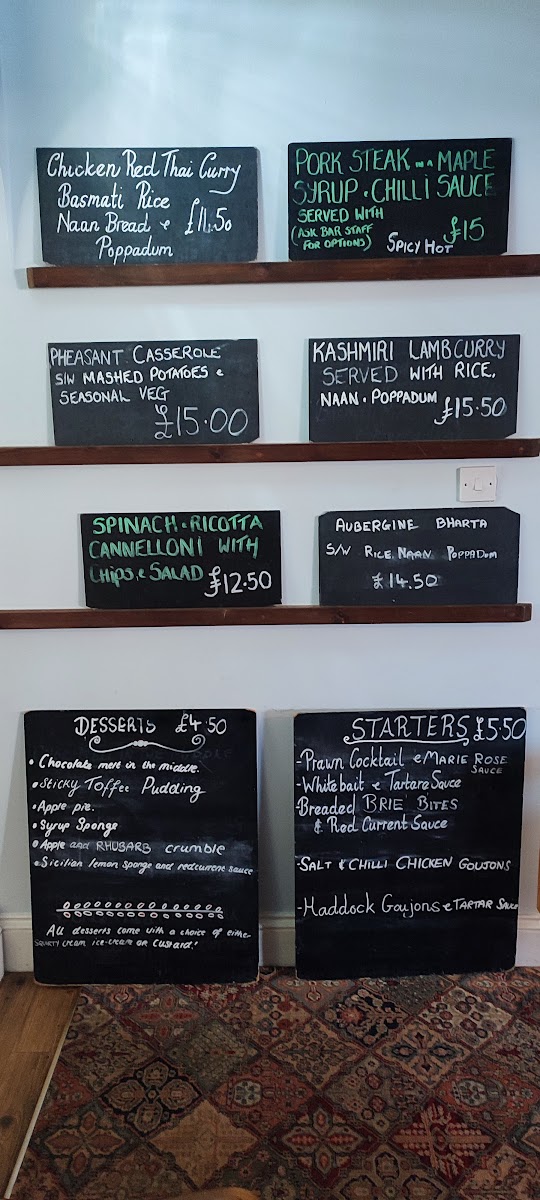 Chicken Red Thai Curry
Basmati Rice
Naan Bread & £11.50
Poppadum
PORK STEAK IN A MAPLE
SYRUP & CHILLI SAUCE
SERVED WITH
(ASK BAR STAFF
FOR OPTIONS)
SPICY HOT £15
PHEASANT CASSEROLE
S/W MASHED POTATOES &
SEASONAL VEG
£15.00
KASHMIRI LAMB CURRY
SERVED WITH RICE,
NAAN & POPPADUM £15.50
SPINACH & RICOTTA
CANNELLONI WITH
CHIPS & SALAD £12.50
AUBERGINE BHARTA
S/W RICE, NAAN POPPADUM
£14.50
DESSERTS £4.50
• Chocolate melt in the middle.
• Sticky Toffee Pudding
• Apple pie.
• Syrup Sponge
• Apple and RHUBARB crumble
• Sicilian lemon sponge and redcurrent sauce
All desserts come with a choice of either
squirty cream ice-cream or custard!
STARTERS £5.50
- Prawn Cocktail & MARIE ROSE
SAUCE
- Whitebait & Tartare Sauce
- Breaded BRIE BITES
& Red Current Sauce
- SALT & CHILLI CHICKEN GOUJONS
- Haddock Goujons & TARTAR SAUCE